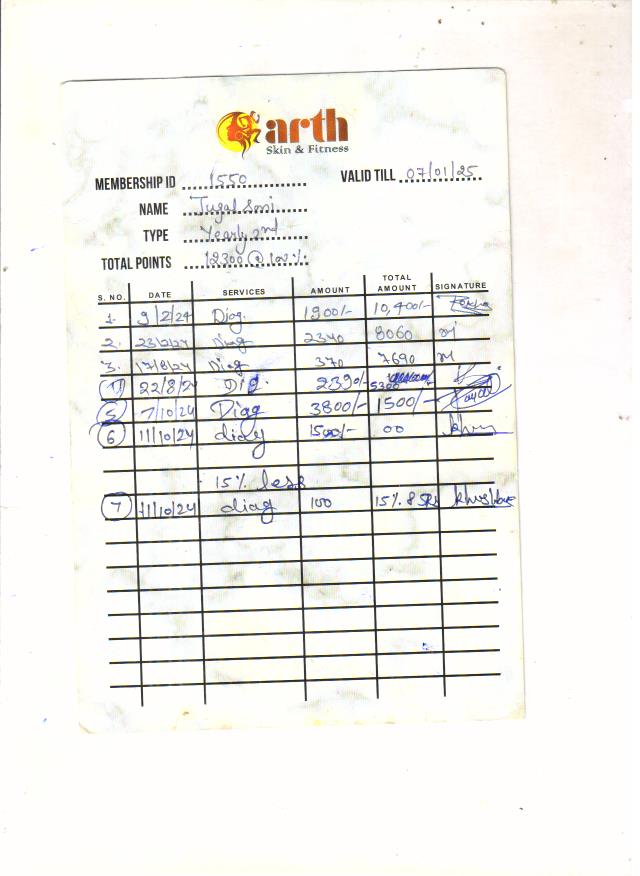 arth
Skin & Fitness
MEMBERSHIP ID 1550 VALID TILL 07/01/25
NAME Jugal Soni
TYPE Yearly 2nd
TOTAL POINTS 12300 @ 100%
S. NO. DATE SERVICES AMOUNT TOTAL AMOUNT SIGNATURE
1. 9/2/24 Diag. 1900/- 10,400/-
2. 23/2/24 Diag 2340 8060 m
3. 17/8/24 Diag 370 7690 m
22/8/24 2390/- 5300
5 7/10/24 Diag 3800/- 1500/-
6 11/10/24 diag 1500/- 00
15% less
7 11/10/24 diag 100 15% 85Rs